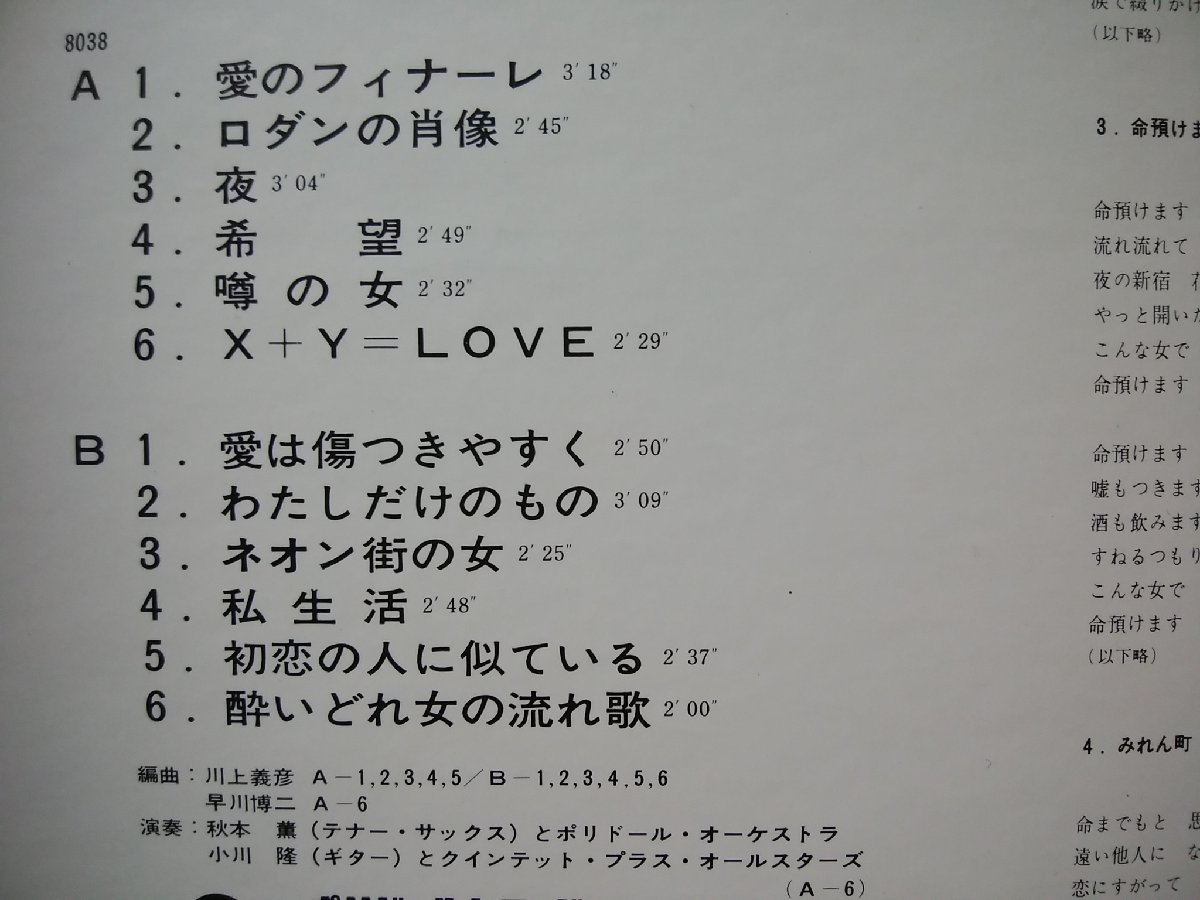 8038
A 1. 愛のフィナーレ 3′18″
2. ロダンの肖像 2′45″
3. 夜 3′04″
4. 希望 2′49″
5. 噂の女 2′32″
6. X+Y=LOVE 2′29″
B 1. 愛は傷つきやすく 2′50″
2. わたしだけのもの 3′09″
3. ネオン街の女 2′25″
4. 私生活 2′48″
5. 初恋の人に似ている 2′37″
6. 酔いどれ女の流れ歌 2′00″
編曲:川上義彦 A-1,2,3,4,5/B-1,2,3,4,5,6
早川博二 A-6
演奏:秋本 薫(テナー・サックス)とポリドール・オーケストラ
小川 隆(ギター)とクインテット・プラス・オールスターズ
(A-6)
涙で綴りかけ
(以下略)
3. 命預けま
命預けます
流れ流れて
夜の新宿 花
やっと開いた
こんな女で
命預けます
命預けます
嘘もつきます
酒も飲みます
すねるつもり
こんな女で
命預けます
(以下略)
4. みれん町
命までもと 思
遠い他人に な
恋にすがって